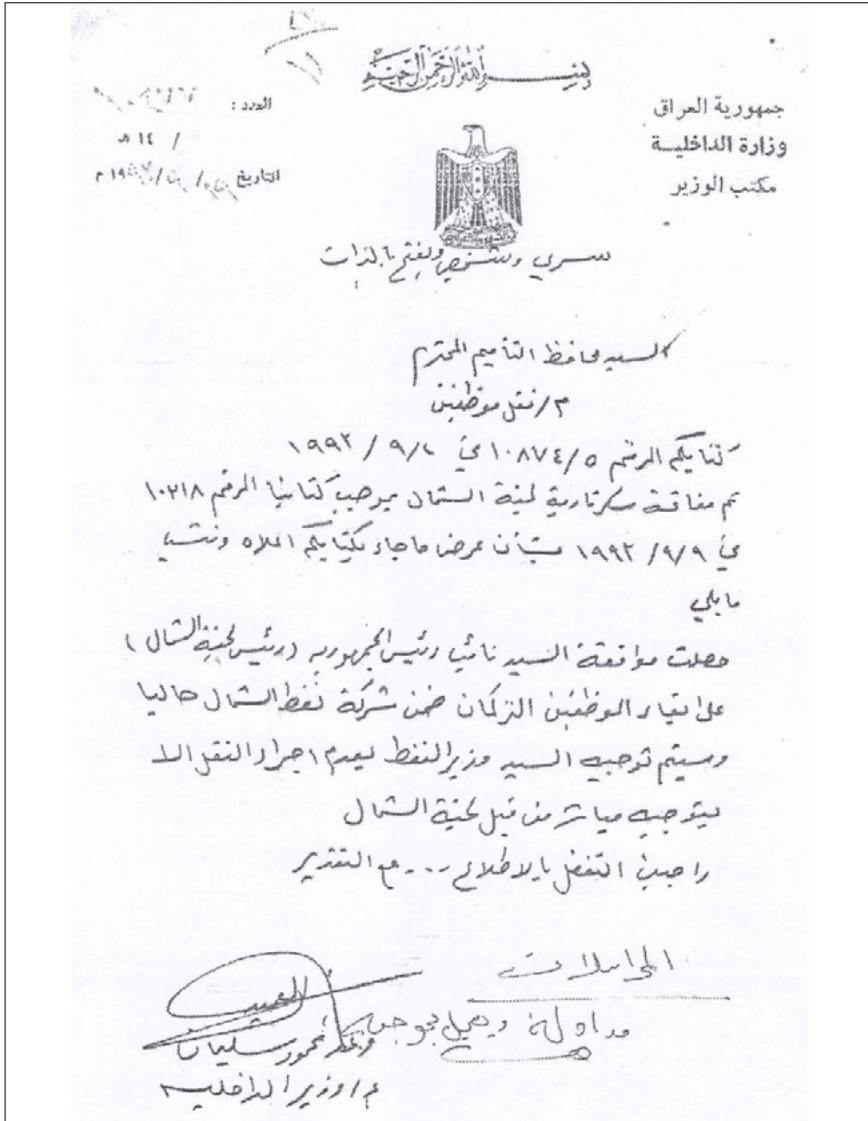 بسم الله الرحمن الرحيم
جمهورية العراق
وزارة الداخلية
مكتب الوزير
العدد :
/ ١٤ هـ
التاريخ / / ١٩ م
سري وشخصي ويفتح بالذات
السيد محافظ التأميم المحترم
م/ نقل موظفين
كتابكم المرقم ١٠٨٧٤/٥ في ١٩٩٢/٩/
تم مفاتحة سكرتارية لجنة الشمال بموجب كتابنا المرقم ١٠٢١٨
في ١٩٩٢/٩/٩ بشأن عرض ماجاء بكتابكم اعلاه ونتسب
مايلي
حصلت موافقة السيد نائب رئيس الجمهورية (رئيس لجنة الشمال)
على ابقاء الموظفين التركمان ضمن شركة نفط الشمال حاليا
وسيتم توجيه السيد وزير النفط بعدم اجراء النقل الا
بتوجيه مباشر من قبل لجنة الشمال
راجين التفضل بالاطلاع ... مع التقدير
مداولة ويعمل بموجبه
العميد
محمود سليمان
ع/وزير الداخلية